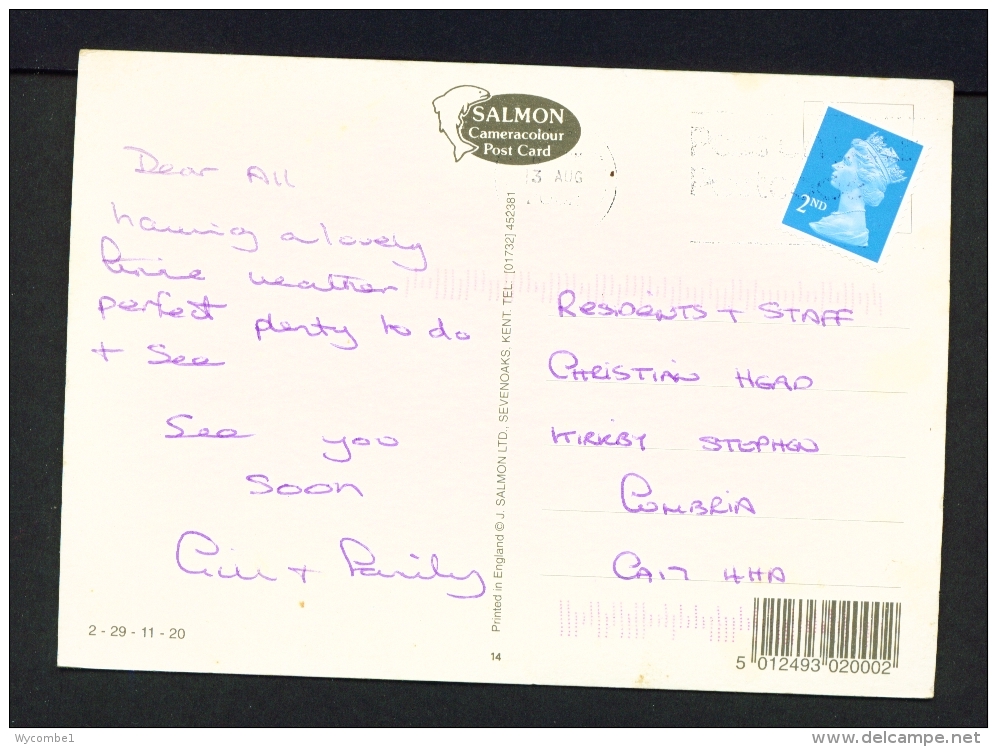 SALMON
Cameracolour
Post Card
13 AUG
2ND
Dear All
having a lovely
time weather
perfect plenty to do
+ See
See you
Soon
+ Family
Printed in England © J. SALMON LTD., SEVENOAKS, KENT. TEL: [01732] 452381
RESIDENTS + STAFF
CHRISTIAN HEAD
KIRKBY STEPHEN
CUMBRIA
CA17 4HA
2 - 29 - 11 - 20
14
5 012493 020002
Wycombe1
www.delcampe.net